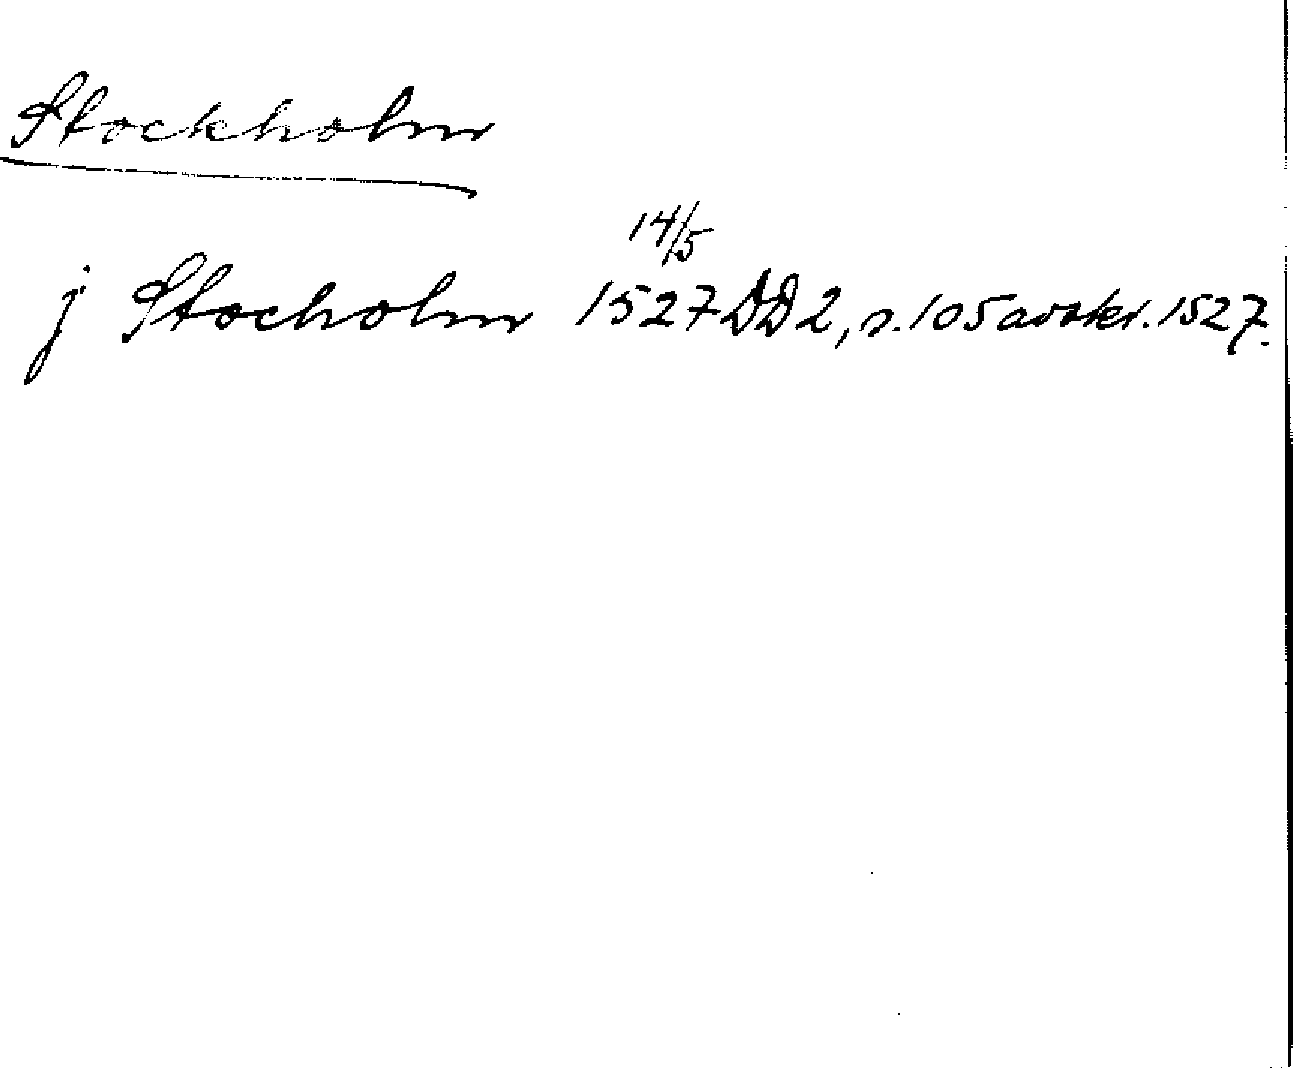 Stockholm
14/5
j Stocholm 1527 DD 2, s. 105 avskr. 1527.